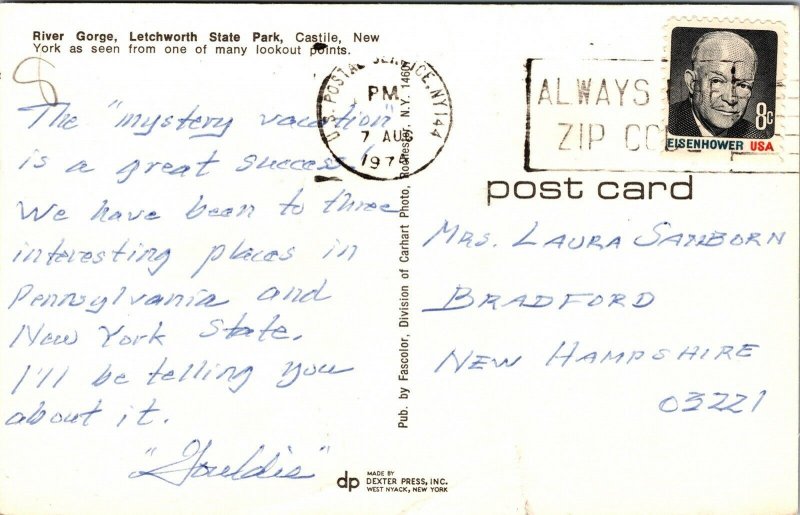 River Gorge, Letchworth State Park, Castile, New
York as seen from one of many lookout points.
The "mystery vacation"
is a great success!
We have been to three
interesting places in
Pennsylvania and
New York State.
I'll be telling you
about it.
"Gouldie"
U.S. POSTAL SERVICE, NY 144
PM
7 AUG
Pub. by Fascolor, Division of Carhart Photo, Rochester, N.Y. 1460
ALWAYS
ZIP CODE
8c
EISENHOWER USA
post card
Mrs. Laura Sanborn
Bradford
New Hampshire
03221
dp
MADE BY
DEXTER PRESS, INC.
WEST NYACK, NEW YORK